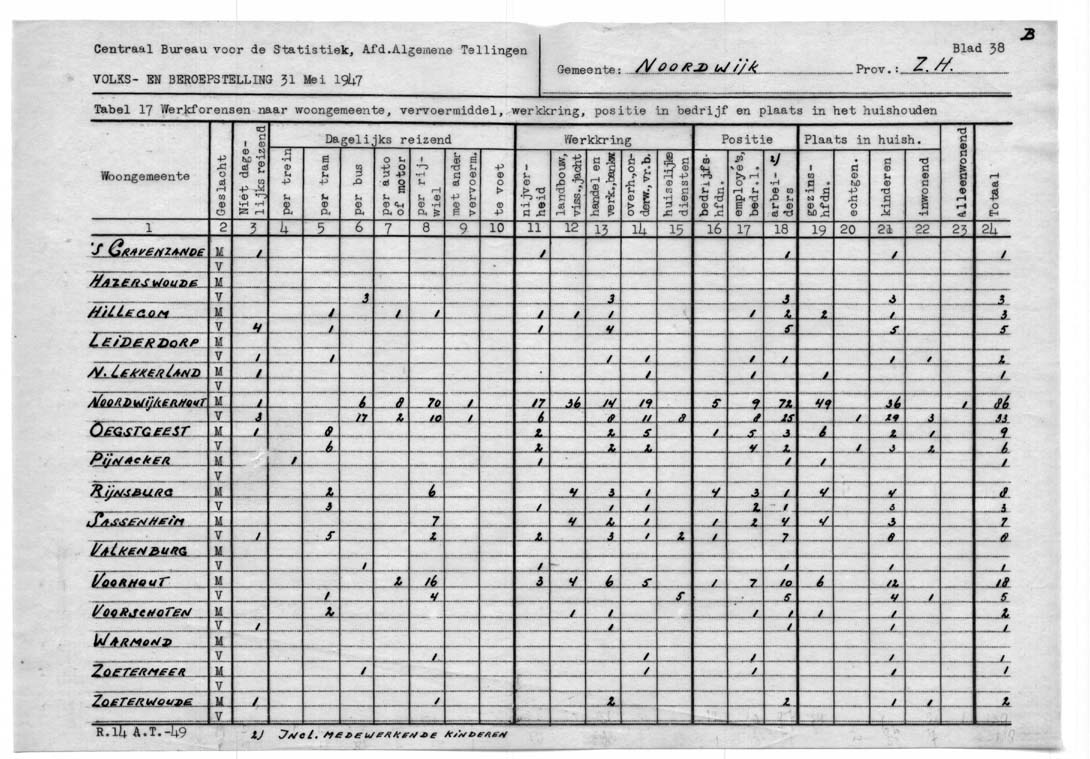 B
Centraal Bureau voor de Statistiek, Afd.Algemene Tellingen
Blad 38
VOLKS- EN BEROEPSTELLING 31 Mei 1947
Gemeente: NOORDWIJK Prov.: Z.H.
Tabel 17 Werkforensen naar woongemeente, vervoermiddel, werkkring, positie in bedrijf en plaats in het huishouden
Woongemeente | Geslacht | Niet dagelijks reizend | Dagelijks reizend | Werkkring | Positie | Plaats in huish. | Alleenwonend | Totaal
per trein | per tram | per bus | per auto of motor | per rijwiel | met ander vervoerm. | te voet | nijverheid | landbouw, viss., jacht | handel en verk., bankw | overh., onderw., vr.b. | huiselijke diensten | bedrijfshfdn. | employe's, bedr.l. | 2) arbeiders | gezinshfdn. | echtgen. | kinderen | inwonend
1 2 3 4 5 6 7 8 9 10 11 12 13 14 15 16 17 18 19 20 21 22 23 24
'S GRAVENZANDE M 1 1 1 1 1
V
HAZERSWOUDE M
V 3 3 3 3 3
HILLEGOM M 1 1 1 1 1 1 1 2 2 1 3
V 4 1 1 4 5 5 5
LEIDERDORP M
V 1 1 1 1 1 1 1 1 2
N. LEKKERLAND M 1 1 1 1 1
V
NOORDWIJKERHOUT M 1 6 8 70 1 17 36 14 19 5 9 72 49 36 1 86
V 3 17 2 10 1 6 8 11 8 8 25 1 29 3 33
OEGSTGEEST M 1 8 2 2 5 1 5 3 6 2 1 9
V 6 2 2 2 4 2 1 3 2 6
PIJNACKER M 1 1 1 1 1
V
RIJNSBURG M 2 6 4 3 1 4 3 1 4 4 8
V 3 1 1 1 2 1 3 3
SASSENHEIM M 7 4 2 1 1 2 4 4 3 7
V 1 5 2 2 3 1 2 1 7 8 8
VALKENBURG M
V 1 1 1 1 1
VOORHOUT M 2 16 3 4 6 5 1 7 10 6 12 18
V 1 4 5 5 4 1 5
VOORSCHOTEN M 2 1 1 1 1 1 1 2
V 1 1 1 1 1
WARMOND M
V 1 1 1 1 1
ZOETERMEER M 1 1 1 1 1
V
ZOETERWOUDE M 1 1 2 2 1 1 2
V
R.14 A.T.-49
2) INCL. MEDEWERKENDE KINDEREN